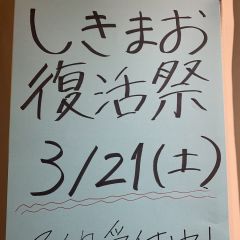 しきまお
復活祭
3/21(土)